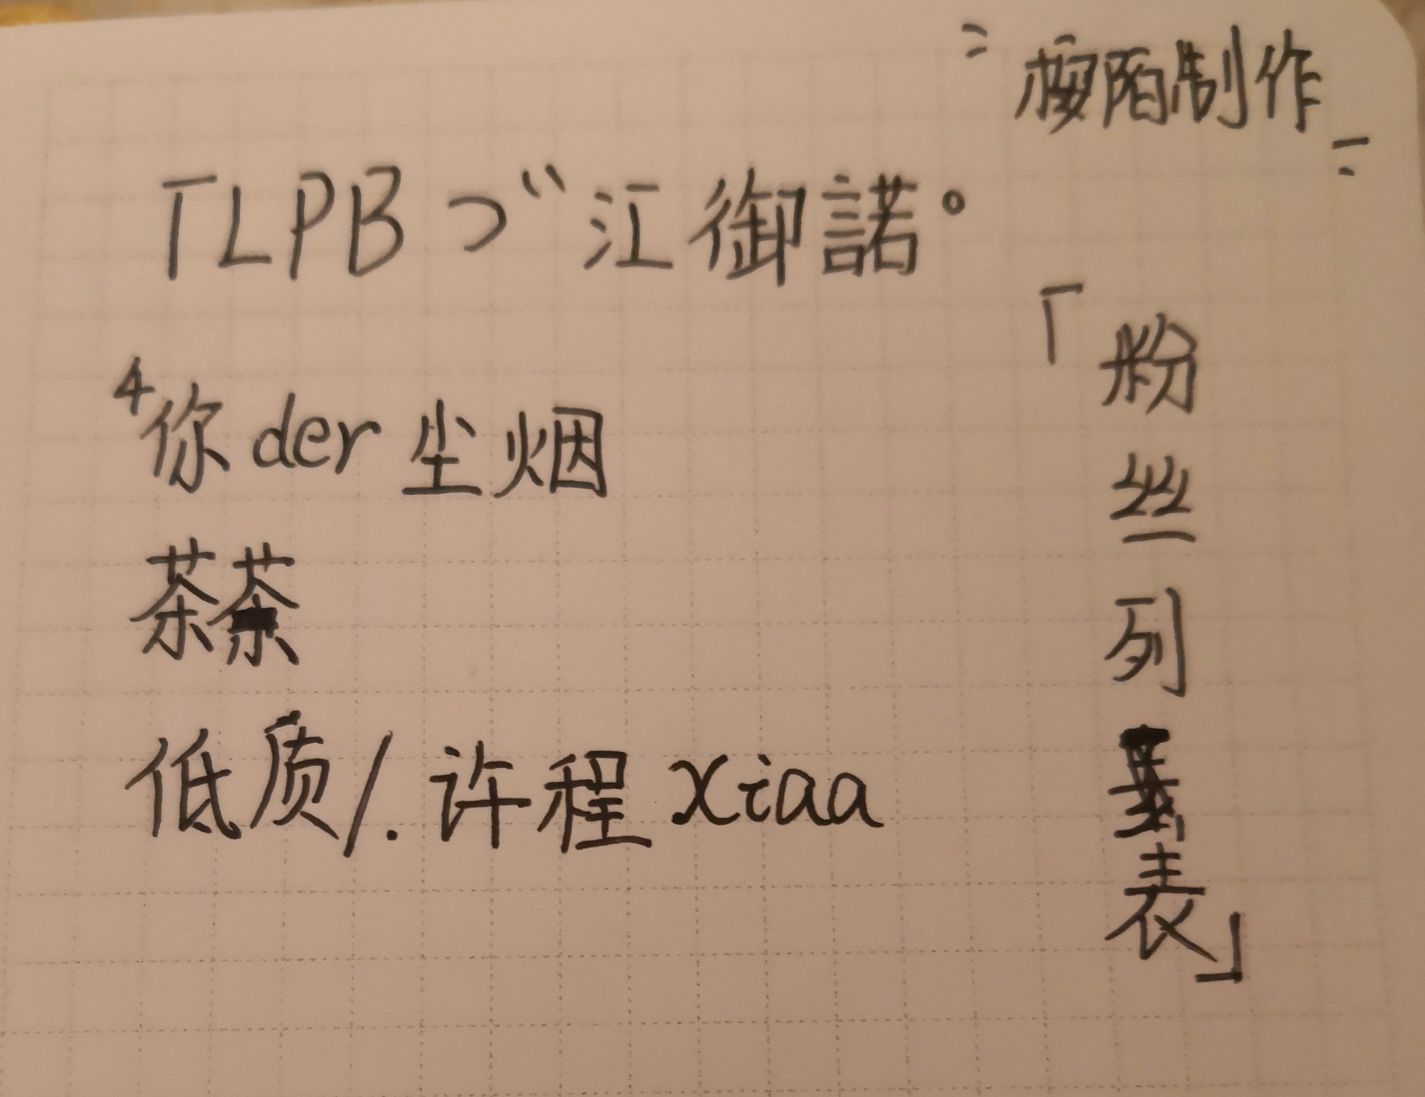 樱陌制作
TLPB つ゛江御諾。
4你der尘烟
茶茶
低质/.许程xiaa
「粉丝列表」